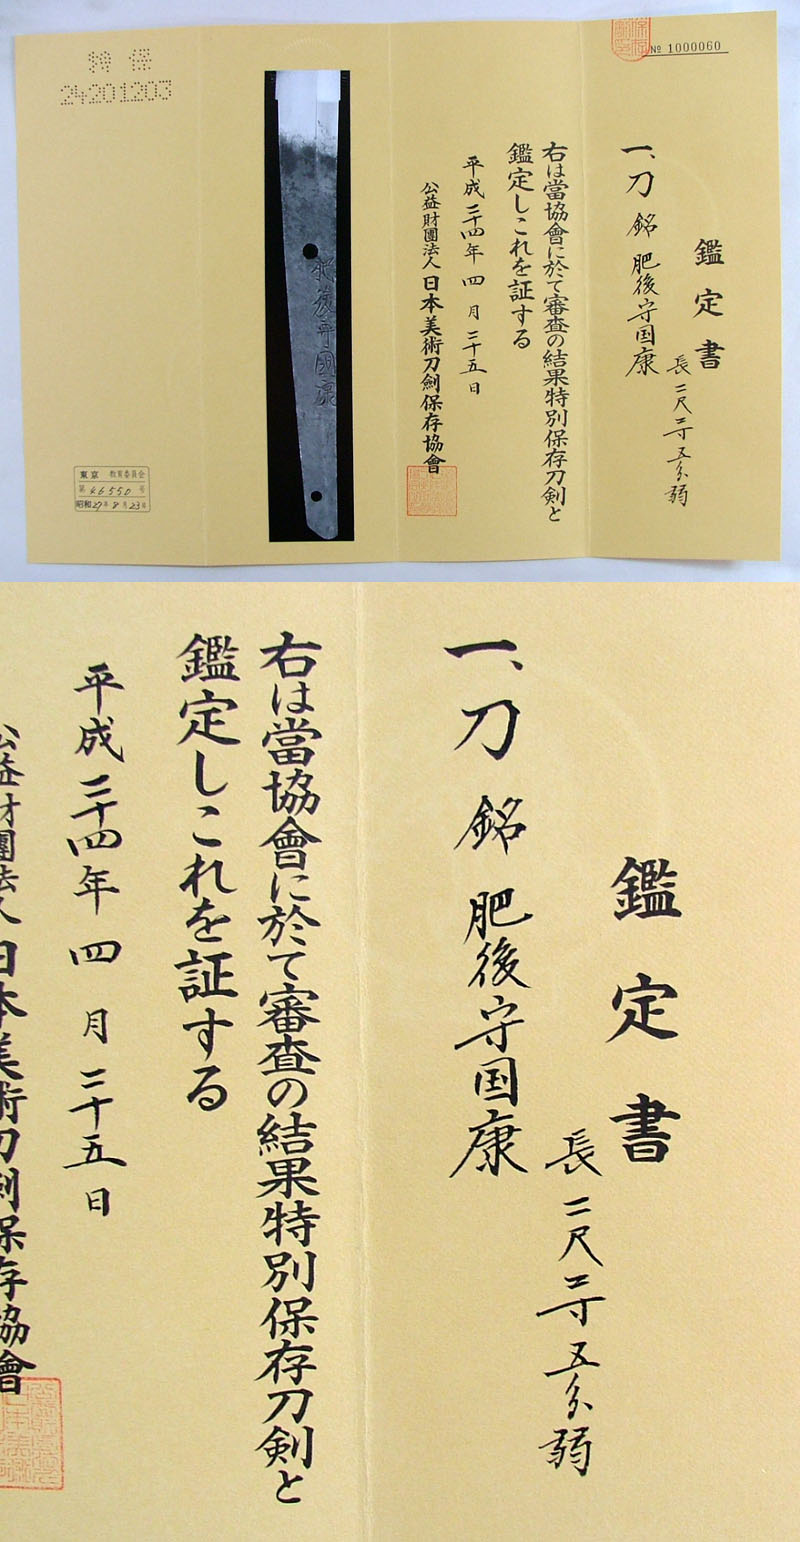 № 1000060
鑑定書
一、刀 銘 肥後守国康
長二尺二寸五分弱
右は當協會に於て審査の結果特別保存刀剣と
鑑定しこれを証する
平成二十四年 四 月 二十五日
公益財團法人 日本美術刀劍保存協會
肥後守國康
特保
24201203
東京 教育委員会
第 46550 号
昭和27年8月23日
鑑定書
一、刀 銘 肥後守国康
長二尺二寸五分弱
右は當協會に於て審査の結果特別保存刀剣と
鑑定しこれを証する
平成二十四年 四 月 二十五日
公益財團法人 日本美術刀劍保存協會